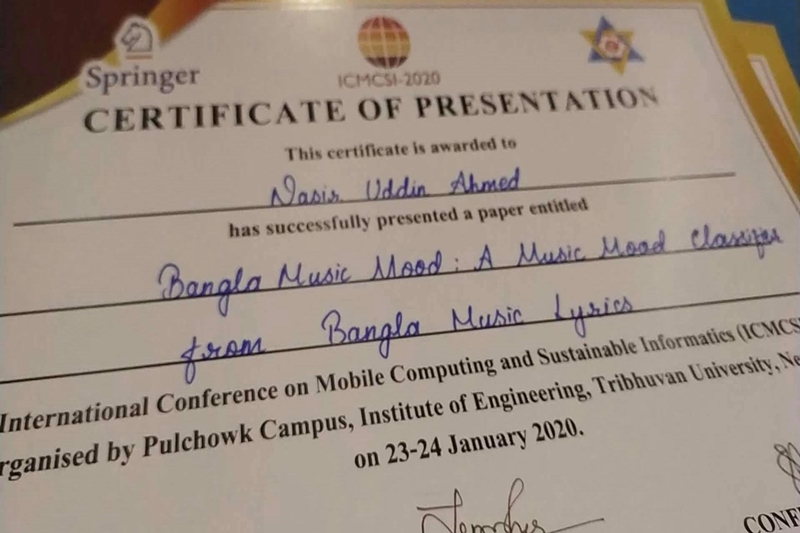 Springer
ICMCSI-2020
CERTIFICATE OF PRESENTATION
This certificate is awarded to
Nasir Uddin Ahmed
has successfully presented a paper entitled
Bangla Music Mood: A Music Mood Classifier
from Bangla Music Lyrics
International Conference on Mobile Computing and Sustainable Informatics (ICMCS
rganised by Pulchowk Campus, Institute of Engineering, Tribhuvan University, Ne
on 23-24 January 2020.
CONF